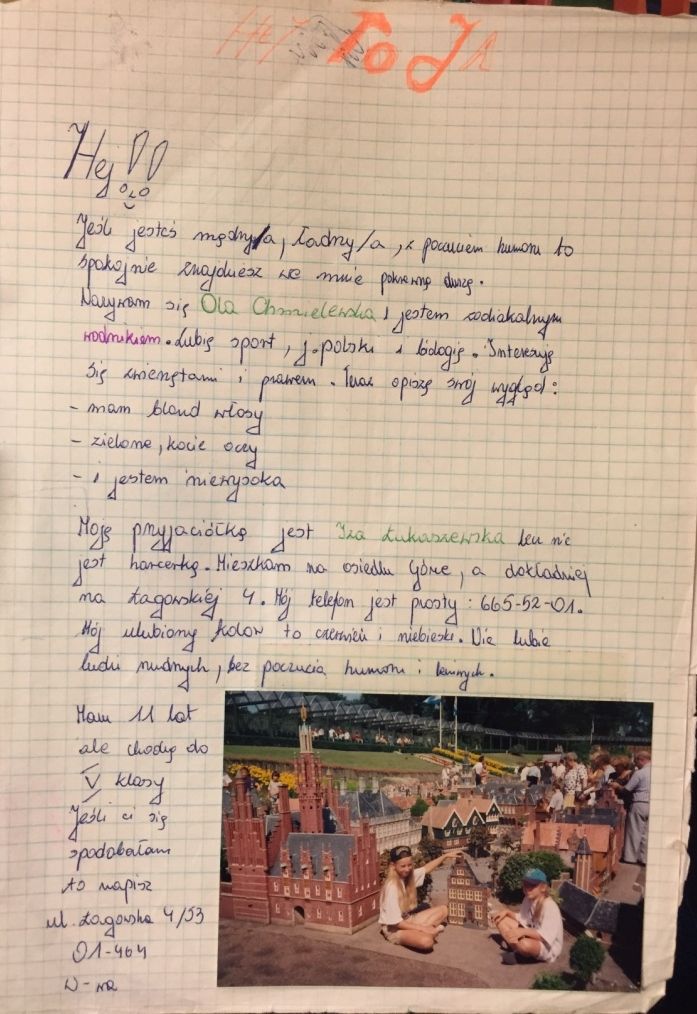 To Ja
Hej!!
Jeśli jesteś mądry/a, ładny/a, z poczuciem humoru to
spokojnie znajdziesz we mnie pokrewną duszę.
Nazywam się Ola Chmielewska i jestem zodiakalnym
wodnikiem. Lubię sport, j.polski i biologię. Interesuję
się zwierzętami i prawem. Teraz opiszę swój wygląd:
- mam blond włosy
- zielone, kocie oczy
- i jestem niewysoka
Moją przyjaciółką jest Iza Łukaszewska lecz nie
jest harcerką. Mieszkam na osiedlu Górce, a dokładniej
na Łagowskiej 4. Mój telefon jest prosty: 665-52-01.
Mój ulubiony kolor to czerwień i niebieski. Nie lubię
ludzi nudnych, bez poczucia humoru i leniwych.
Mam 11 lat
ale chodzę do
V klasy
Jeśli ci się
spodobałam
to napisz
ul. Łagowska 4/53
01-464
W-wa